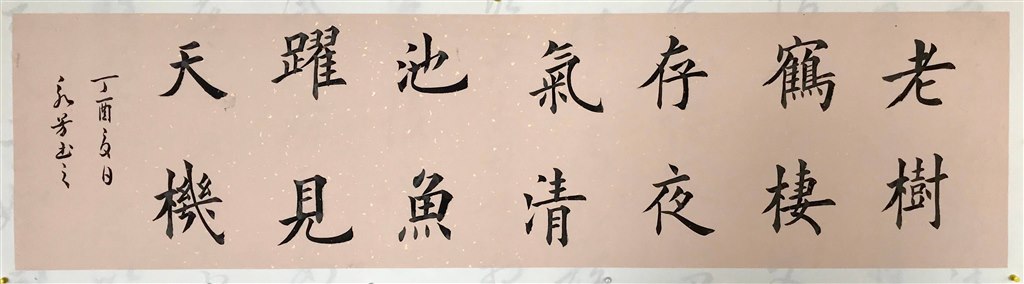 老樹
鶴棲
存夜
氣清
池魚
躍見
天機
丁酉夏日
永芳书之